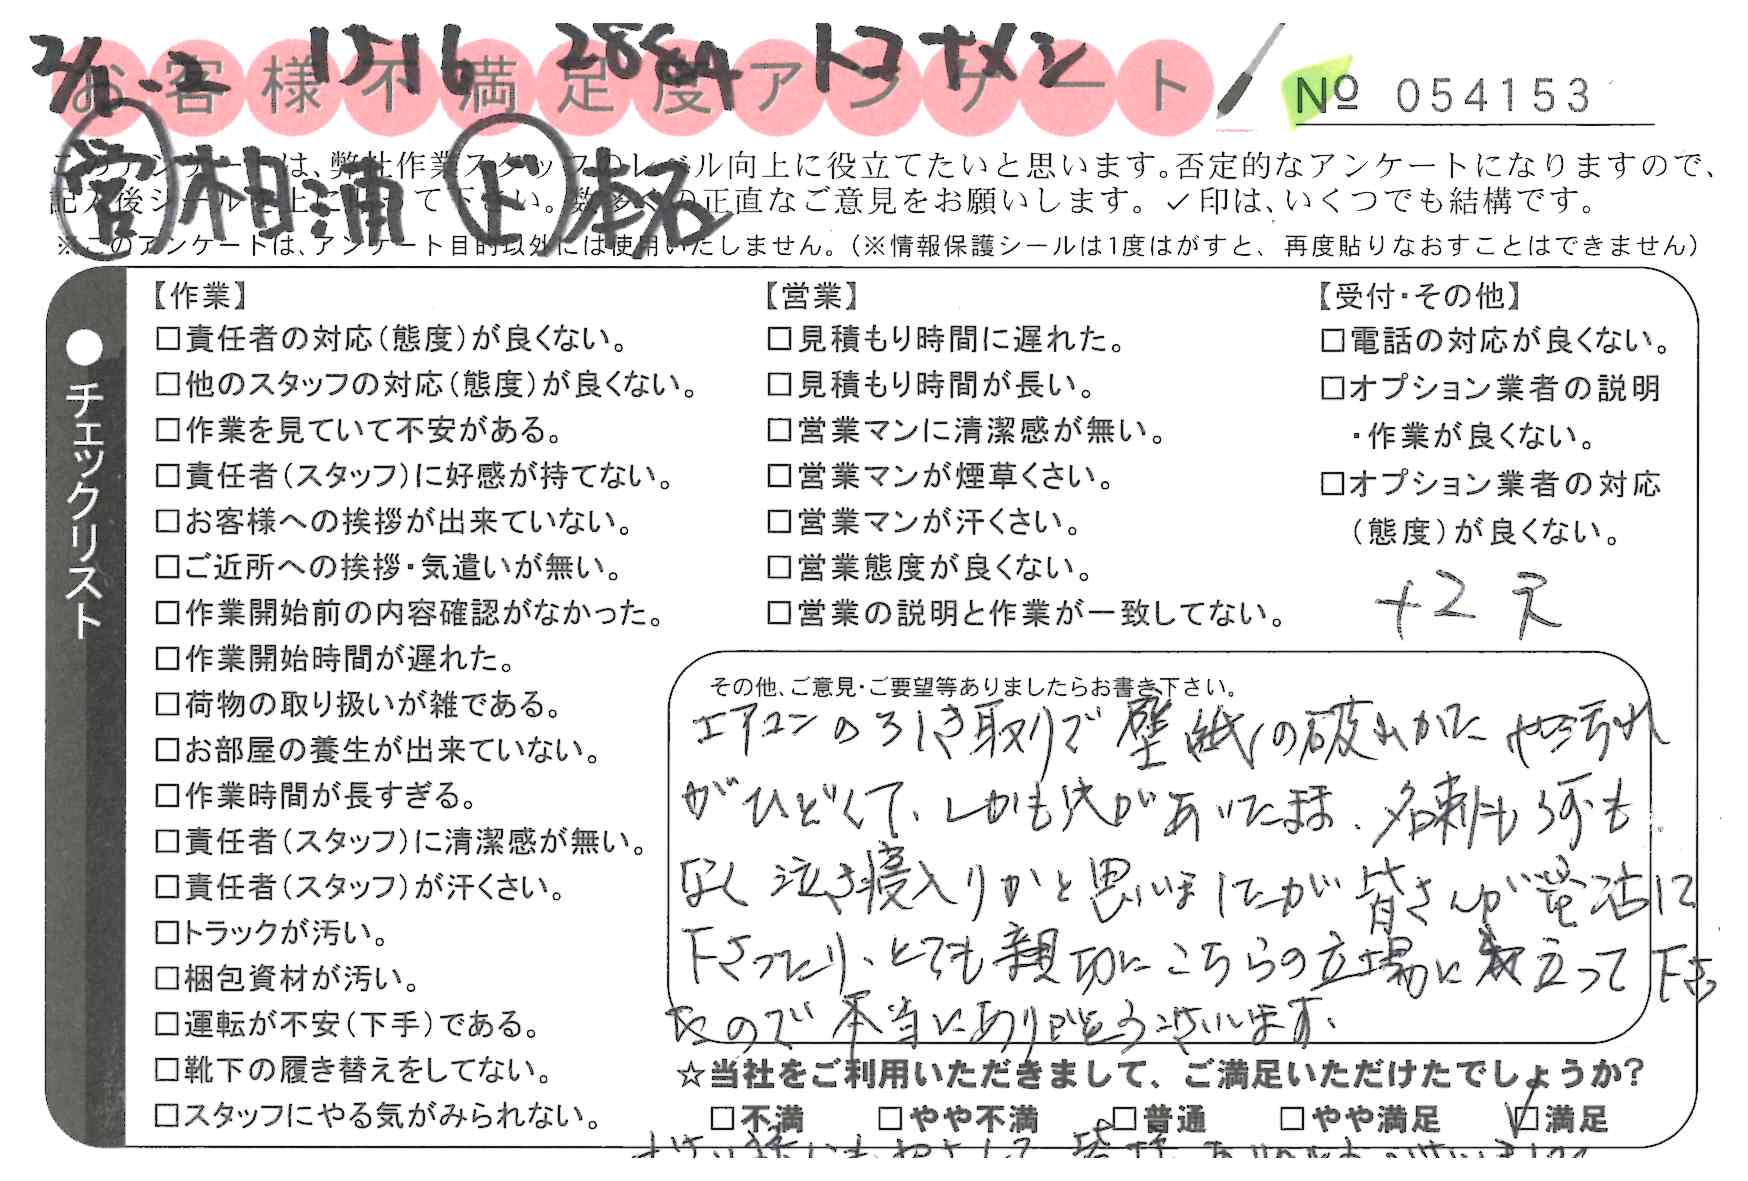 2/2-2 1516 288A トコナメシ
お客様不満足度アンケート
№ 054153
このアンケートは、弊社作業スタッフのレベル向上に役立てたいと思います。否定的なアンケートになりますので、
記入後シールを上に貼って下さい。数多くの正直なご意見をお願いします。✓印は、いくつでも結構です。
相浦
※このアンケートは、アンケート目的以外には使用いたしません。(※情報保護シールは1度はがすと、再度貼りなおすことはできません)
●チェックリスト
【作業】
□責任者の対応(態度)が良くない。
□他のスタッフの対応(態度)が良くない。
□作業を見ていて不安がある。
□責任者(スタッフ)に好感が持てない。
□お客様への挨拶が出来ていない。
□ご近所への挨拶・気遣いが無い。
□作業開始前の内容確認がなかった。
□作業開始時間が遅れた。
□荷物の取り扱いが雑である。
□お部屋の養生が出来ていない。
□作業時間が長すぎる。
□責任者(スタッフ)に清潔感が無い。
□責任者(スタッフ)が汗くさい。
□トラックが汚い。
□梱包資材が汚い。
□運転が不安(下手)である。
□靴下の履き替えをしてない。
□スタッフにやる気がみられない。
【営業】
□見積もり時間に遅れた。
□見積もり時間が長い。
□営業マンに清潔感が無い。
□営業マンが煙草くさい。
□営業マンが汗くさい。
□営業態度が良くない。
□営業の説明と作業が一致してない。
【受付・その他】
□電話の対応が良くない。
□オプション業者の説明
・作業が良くない。
□オプション業者の対応
(態度)が良くない。
+2 ス
その他、ご意見・ご要望等ありましたらお書き下さい。
エアコンの引き取りで壁紙の破れかたや汚れ
がひどくて、しかも穴があいたまま、名刺も何も
なく泣き寝入りかと思いましたが皆さんが電話に
下さったり、とても親切にこちらの立場に立って下さっ
たので本当にありがとうございます、
☆当社をご利用いただきまして、ご満足いただけたでしょうか?
□不満 □やや不満 □普通 □やや満足 ☑満足